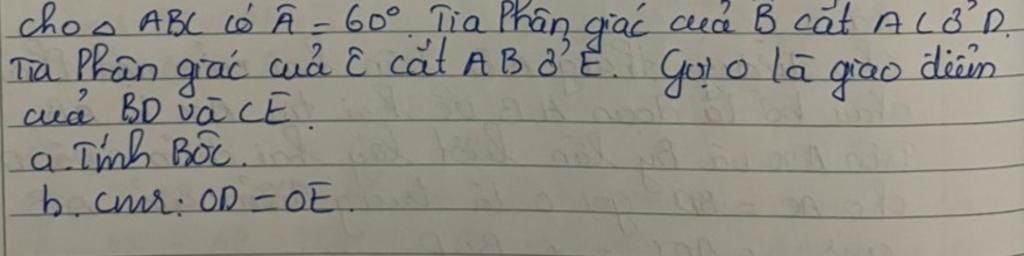 Cho △ ABC có Â = 60°. Tia Phân giác của B̂ cắt AC ở D.
Tia Phân giác của Ĉ cắt AB ở E. Gọi O là giao điểm
của BD và CE.
a. Tính BÔC.
b. cmr: OD = OE.